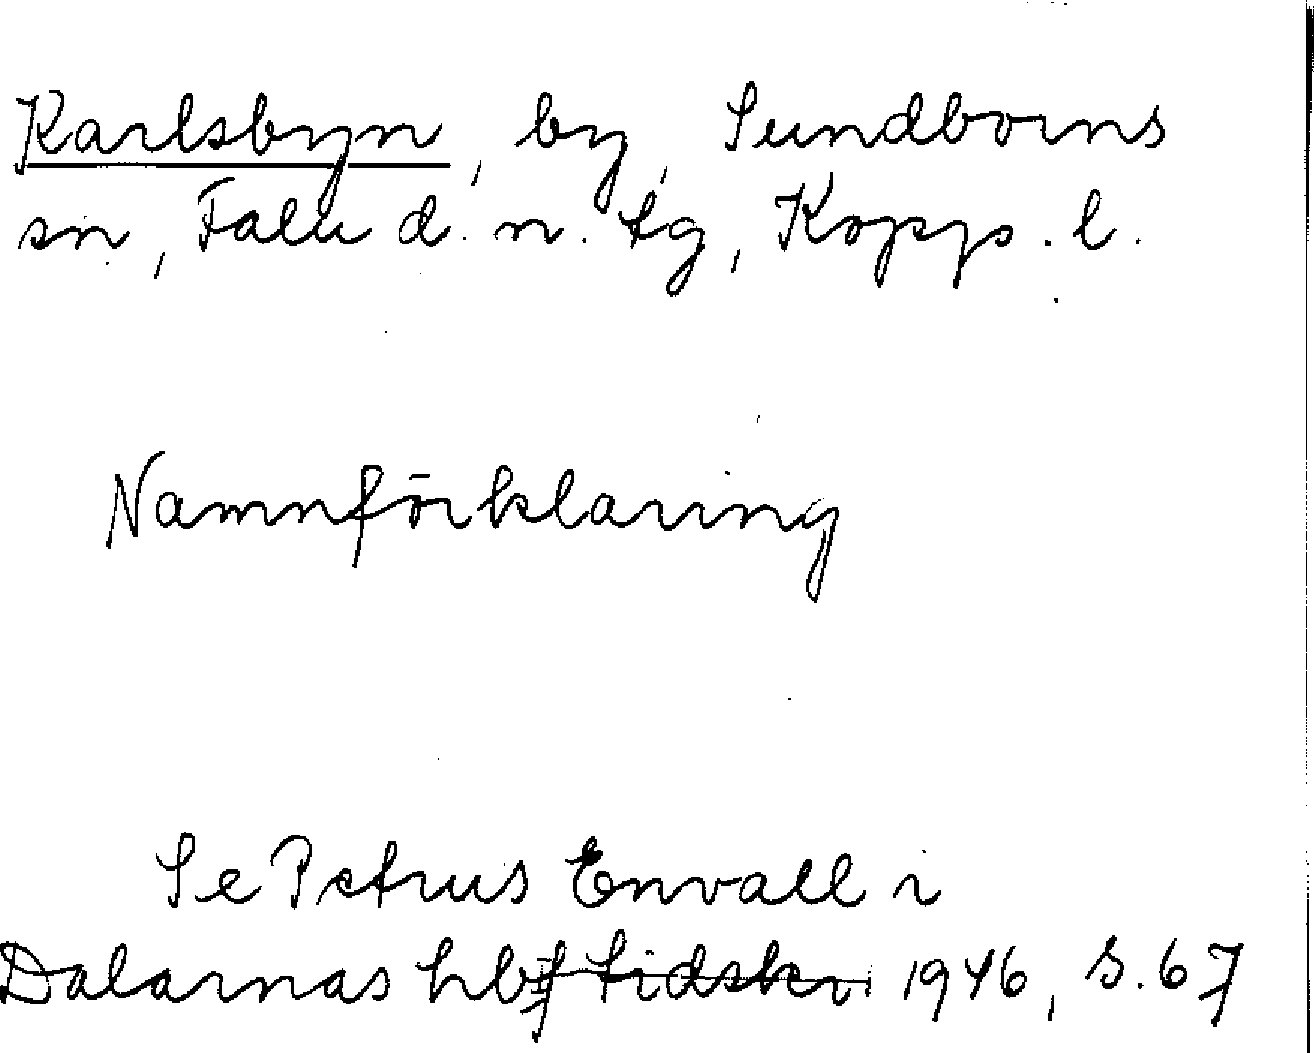 Karlsbyn, by, Sundborns
sn, Falu d. n. tg, Kopps. l.
Namnförklaring
Se Petrus Envall i
Dalarnas hbf tidskr. 1946, S. 67